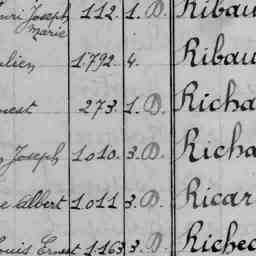 enri Joseph 112. 1. D. Ribau
Marie
ulien 1.792. 4. Ribau
nest 273. 1. D. Richa
Joseph 1.010. 3. D. Richa
e Albert 1.011 3. D. Ricar
Louis Ernest 1.163 3. D. Richec